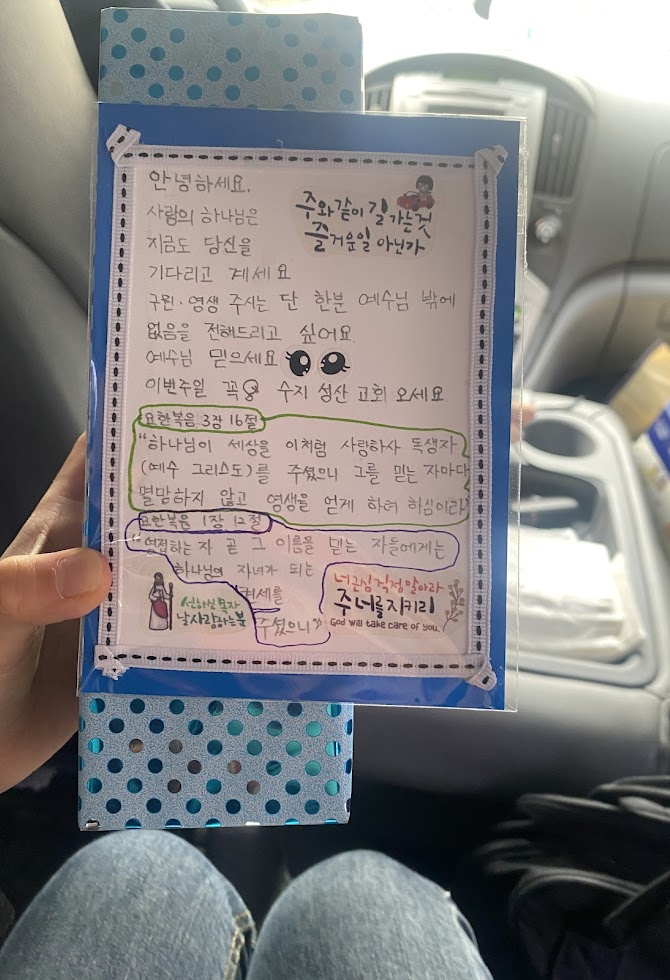 안녕하세요.
주와같이 길 가는 것
즐거운일 아닌가
사랑의 하나님은
지금도 당신을
기다리고 계세요
구원·영생 주시는 단 한분 예수님 밖에
없음을 전해드리고 싶어요
예수님 믿으세요
이번주일 꼭 수지 성산 교회 오세요
요한복음 3장 16절
"하나님이 세상을 이처럼 사랑하사 독생자
(예수 그리스도)를 주셨으니 그를 믿는 자마다
멸망하지 않고 영생을 얻게 하려 하심이라"
요한복음 1장 12절
"영접하는 자 곧 그 이름을 믿는 자들에게는
하나님의 자녀가 되는
권세를
주셨으니"
선하신 목자
날 사랑하는 분
너 근심 걱정 말아라
주 너를 지키리
God will take care of you.